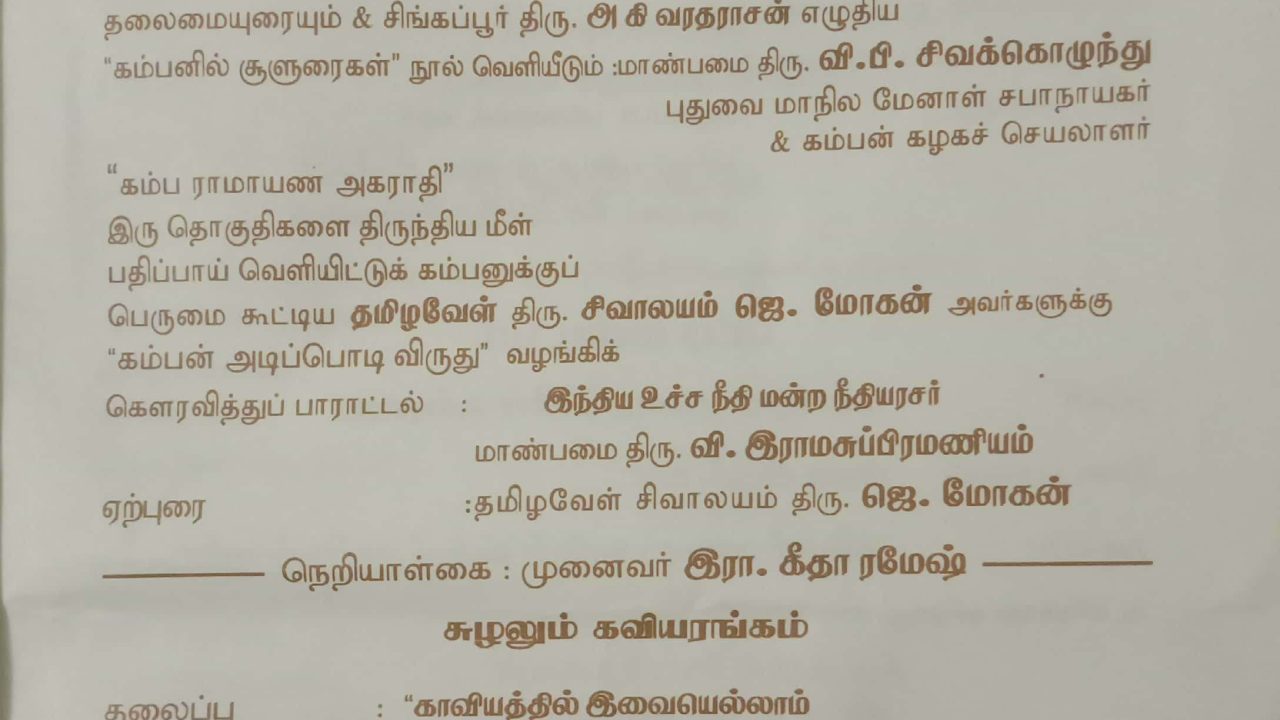 தலைமையுரையும் & சிங்கப்பூர் திரு. அ கி வரதராசன் எழுதிய
“கம்பனில் சூளுரைகள்” நூல் வெளியீடும் :மாண்பமை திரு. வி.பி. சிவக்கொழுந்து
புதுவை மாநில மேனாள் சபாநாயகர்
& கம்பன் கழகச் செயலாளர்
“கம்ப ராமாயண அகராதி”
இரு தொகுதிகளை திருந்திய மீள்
பதிப்பாய் வெளியிட்டுக் கம்பனுக்குப்
பெருமை கூட்டிய தமிழவேள் திரு. சிவாலயம் ஜெ. மோகன் அவர்களுக்கு
“கம்பன் அடிப்பொடி விருது” வழங்கிக்
கௌரவித்துப் பாராட்டல் : இந்திய உச்ச நீதி மன்ற நீதியரசர்
மாண்பமை திரு. வி. இராமசுப்பிரமணியம்
ஏற்புரை :தமிழவேள் சிவாலயம் திரு. ஜெ. மோகன்
நெறியாள்கை : முனைவர் இரா. கீதா ரமேஷ்
சுழலும் கவியரங்கம்
தலைப்பு : “காவியத்தில் இவையெல்லாம்